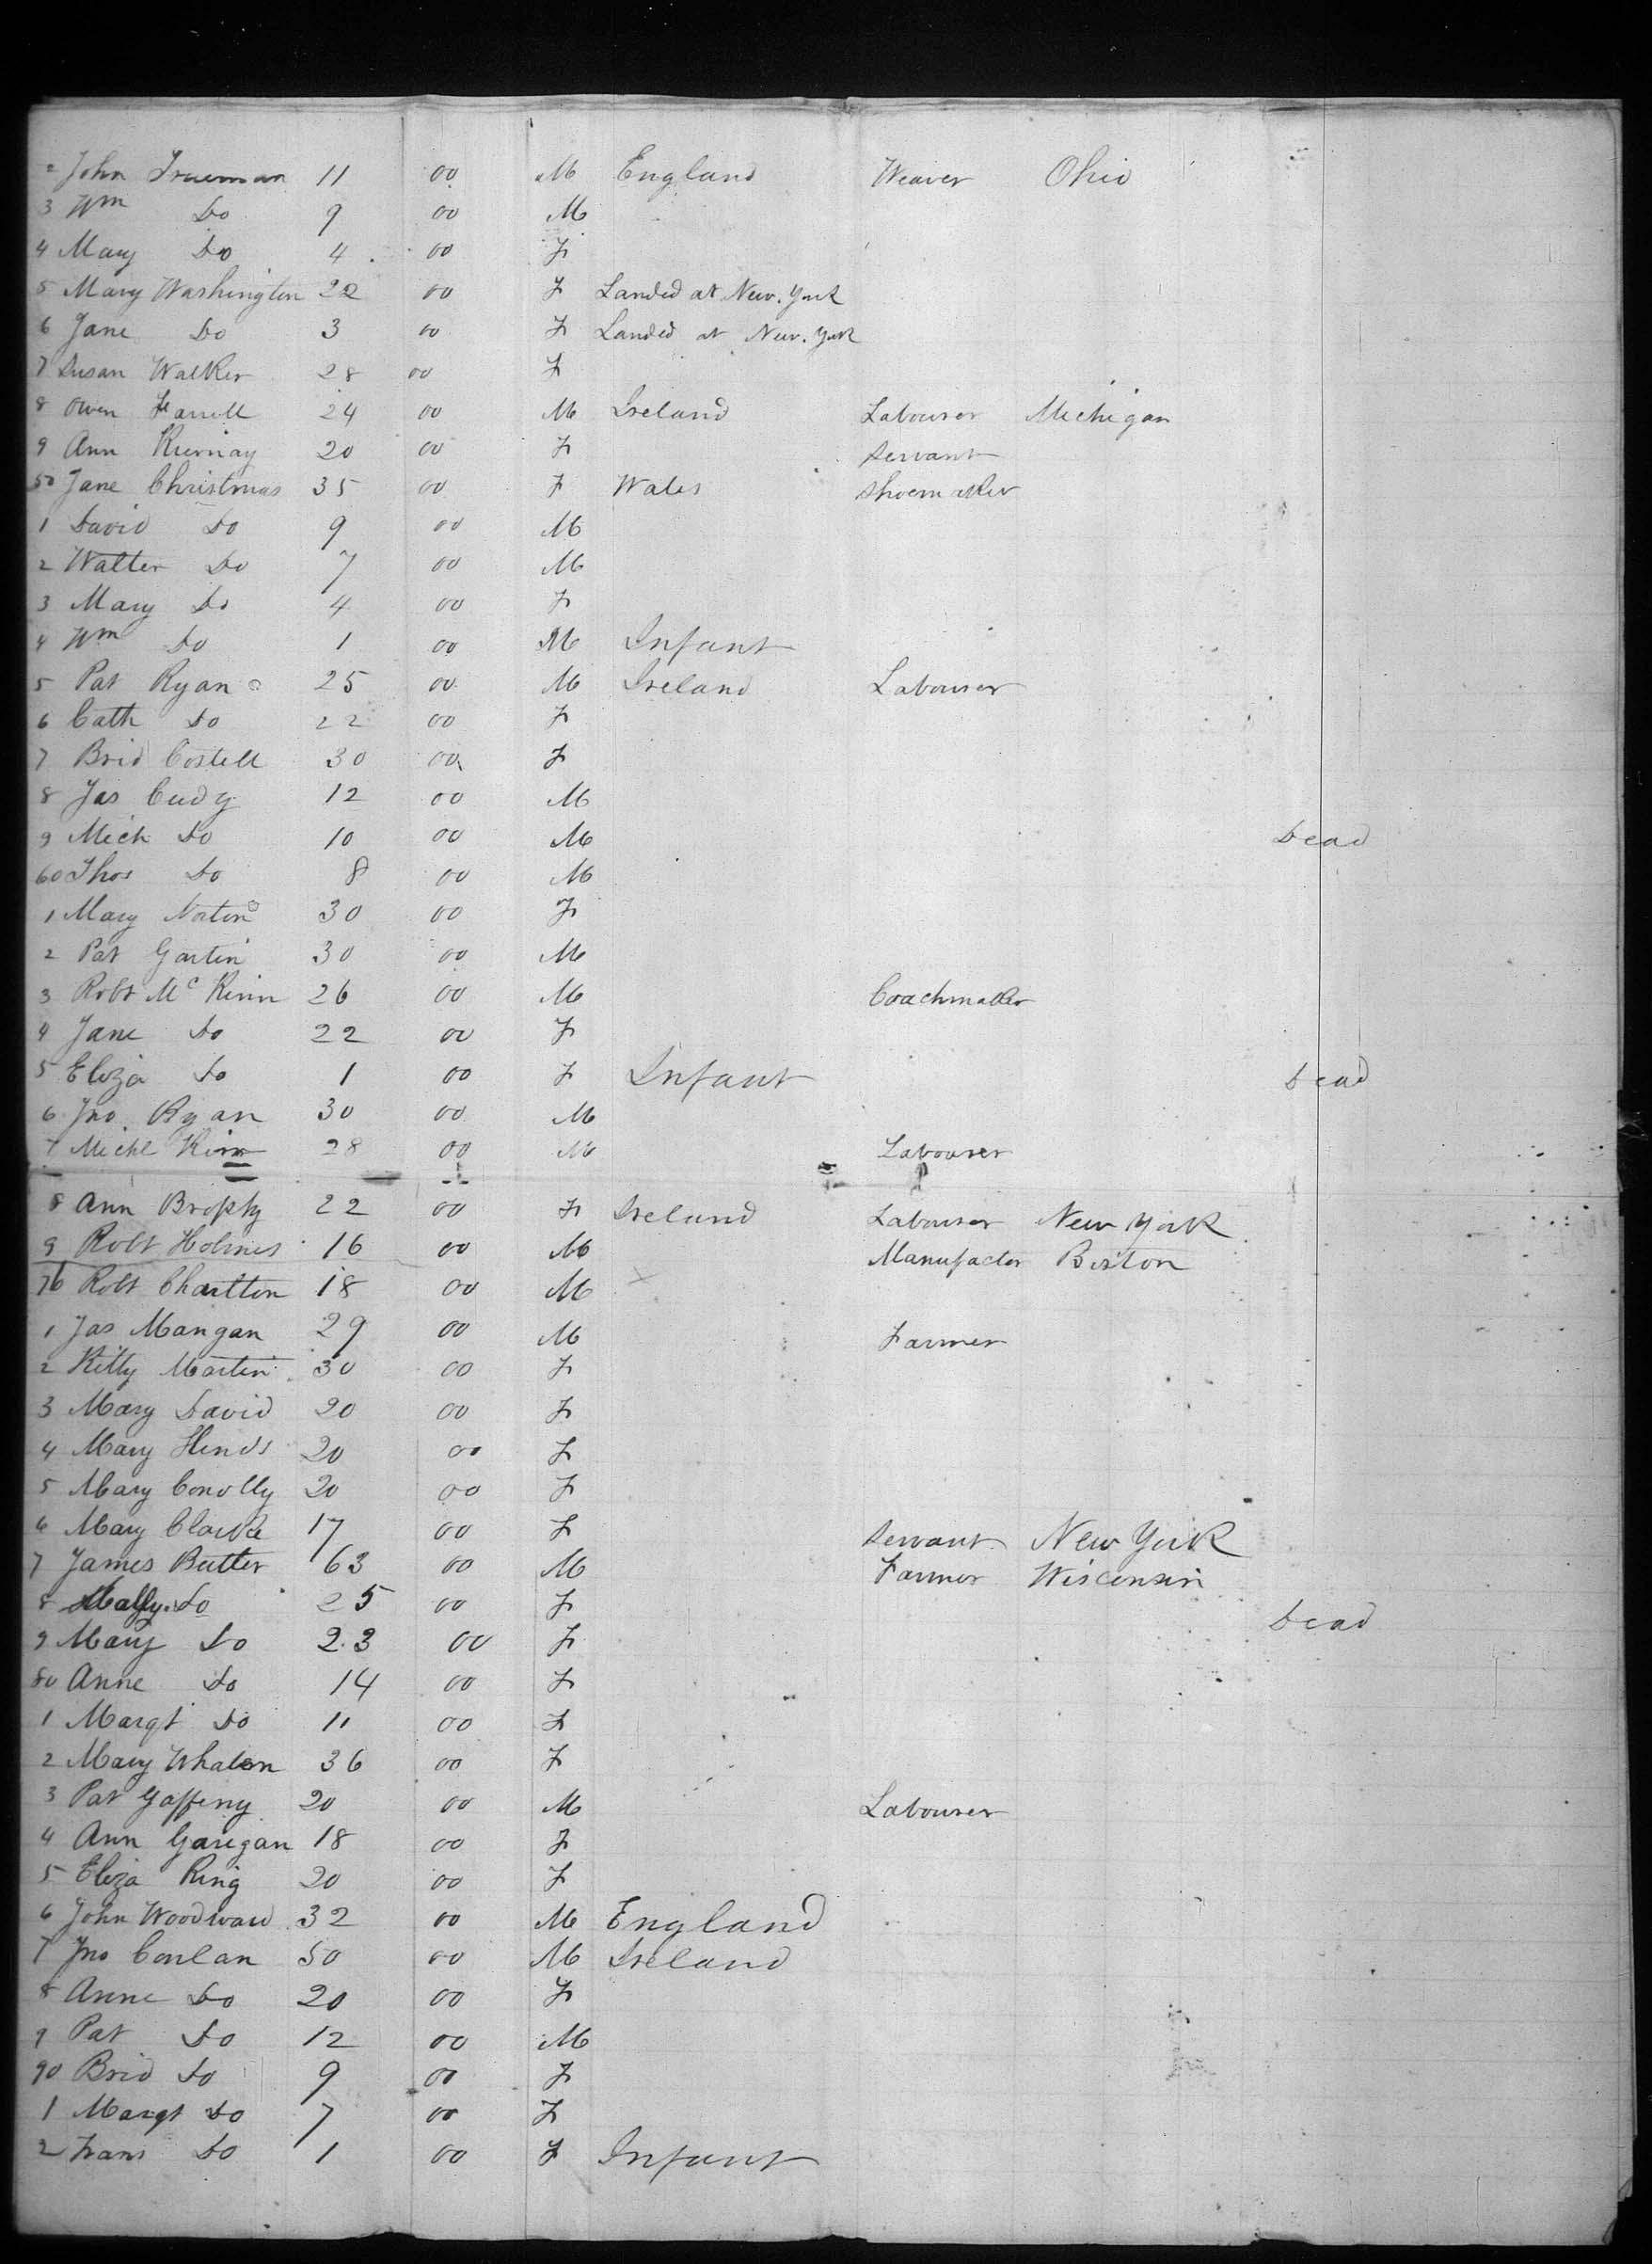 2 John Trueman 11 00 M England Weaver Ohio
3 Wm Do 9 00 M
4 Mary Do 4 00 F
5 Mary Washington 22 00 F Landed at New. York
6 Jane Do 3 00 F Landed at New. York
7 Susan Walker 28 00 F
8 Owen Farrell 24 00 M Ireland Labourer Michigan
9 Ann Kiernay 20 00 F Servant
50 Jane Christmas 35 00 F Wales Shoemaker
1 David Do 9 00 M
2 Walter Do 7 00 M
3 Mary Do 4 00 F
4 Wm Do 1 00 M Infant
5 Pat Ryan 25 00 M Ireland Labourer
6 Cath Do 22 00 F
7 Brid Costell 30 00 F
8 Jas Cudy 12 00 M
9 Mich Do 10 00 M Dead
60 Thos Do 8 00 M
1 Mary Naton 30 00 F
2 Pat Gartin 30 00 M
3 Robt Mc Kinn 26 00 M Coachmaker
4 Jane Do 22 00 F
5 Eliza Do 1 00 F Infant Dead
6 Jno. Ryan 30 00 M
7 Michl Kinn 28 00 M Labourer
8 Ann Brophy 22 00 F Ireland Labourer New York
9 Robt Holmes 16 00 M Manufactor Boston
70 Robt Charlton 18 00 M
1 Jas Mangan 29 00 M Farmer
2 Kitty Martin 30 00 F
3 Mary David 20 00 F
4 Mary Hinds 20 00 F
5 Mary Conolly 20 00 F
6 Mary Clarke 17 00 F Servant New York
7 James Butler 63 00 M Farmer Wisconsin
8 Do 25 00 F Dead
9 Mary Do 23 00 F
80 Anne Do 14 00 F
1 Margt Do 11 00 F
2 Mary Whalen 36 00 F
3 Pat Gaffeny 20 00 M Labourer
4 Ann Garegan 18 00 F
5 Eliza King 20 00 F
6 John Woodward 32 00 M England
7 Jno Conlan 50 00 M Ireland
8 Anne Do 20 00 F
9 Pat Do 12 00 M
90 Brid Do 9 00 F
1 Margt Do 7 00 F
2 Frans Do 1 00 F Infant